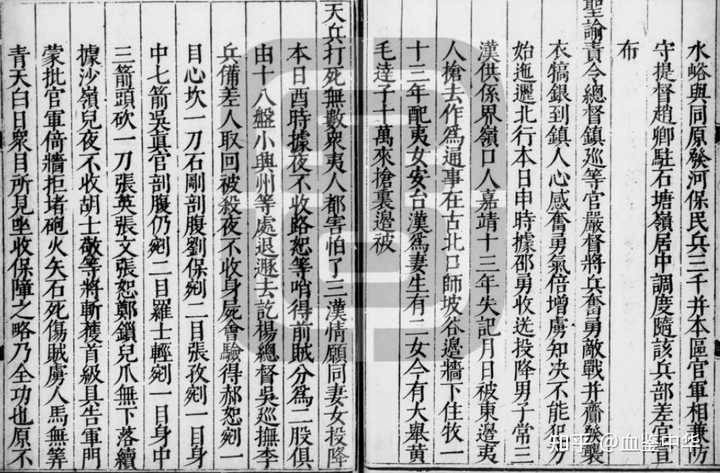 水峪與同原發河保民兵三千并本區官軍相兼防
守提督趙卿駐石塘嶺居中調度隨該兵部差官宣
布
聖諭責令總督鎮巡等官嚴督將兵奮勇敵戰并齎發
衣犒銀到鎮人心感奮勇氣倍增虜知决不能犯方
始迤邐北行本日申時據邵勇收送投降男子常三
漢供係界嶺口人嘉靖十三年失記月日被東邊夷
人搶去作爲通事在古北口師坡谷邊牆下住牧一
十三年配夷女安台漢爲妻生有二女今有大舉黃
毛達子十萬來搶裏邊被
天兵打死無數衆夷人都害怕了三漢情願同妻女投降
本日酉時據夜不收路恕等哨得前賊分爲二股俱
由十八盤小興州等處退遯去訖楊總督吳巡撫李
兵備差人取回被殺夜不收身屍會驗得郝恕剜一
目心坎一刀石剛剖腹劉保剜二目張孜剜一目身
中七箭吳真官剖腹仍剜二目羅士輕剜一目身中
三箭頭砍一刀張英張文張恕鄭鎖兒爪無下落續
據沙嶺兒夜不收胡士敬等將斬獲首級具告軍門
蒙批官軍倚牆拒堵砲火矢石死傷賊虜人馬無筭
青天白日衆目所見坐收保障之略乃全功也原不
知乎 @血鉴中华